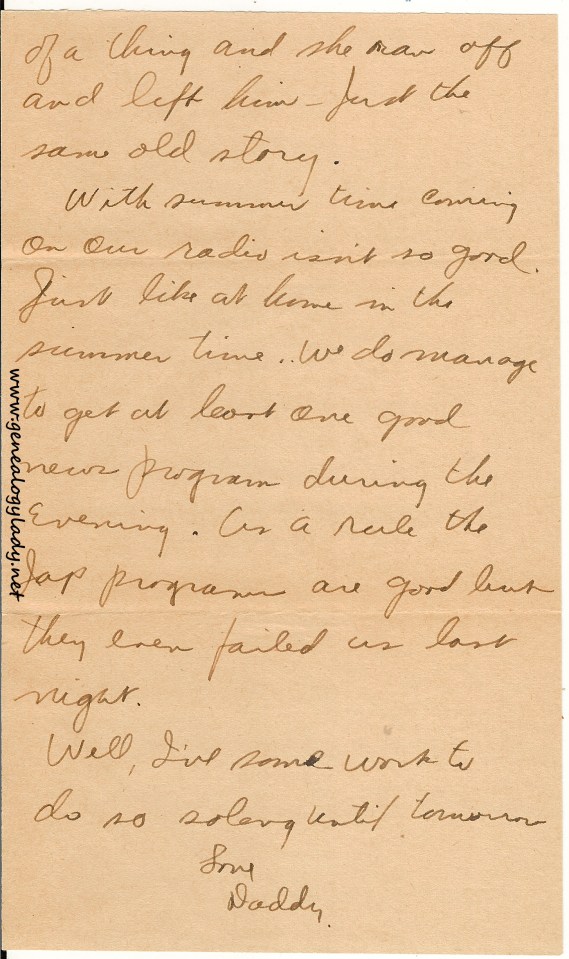 of a thing and she ran off
and left him - Just the
same old story.
With summer time coming
on our radio isn't so good.
Just like at home in the
summer time.. We do manage
to get at least one good
news program during the
Evening. As a rule the
Jap programs are good but
they even failed us last
night.
Well, I've some work to
do so solong until tomorrow
Love
Daddy.
www.genealogylady.net